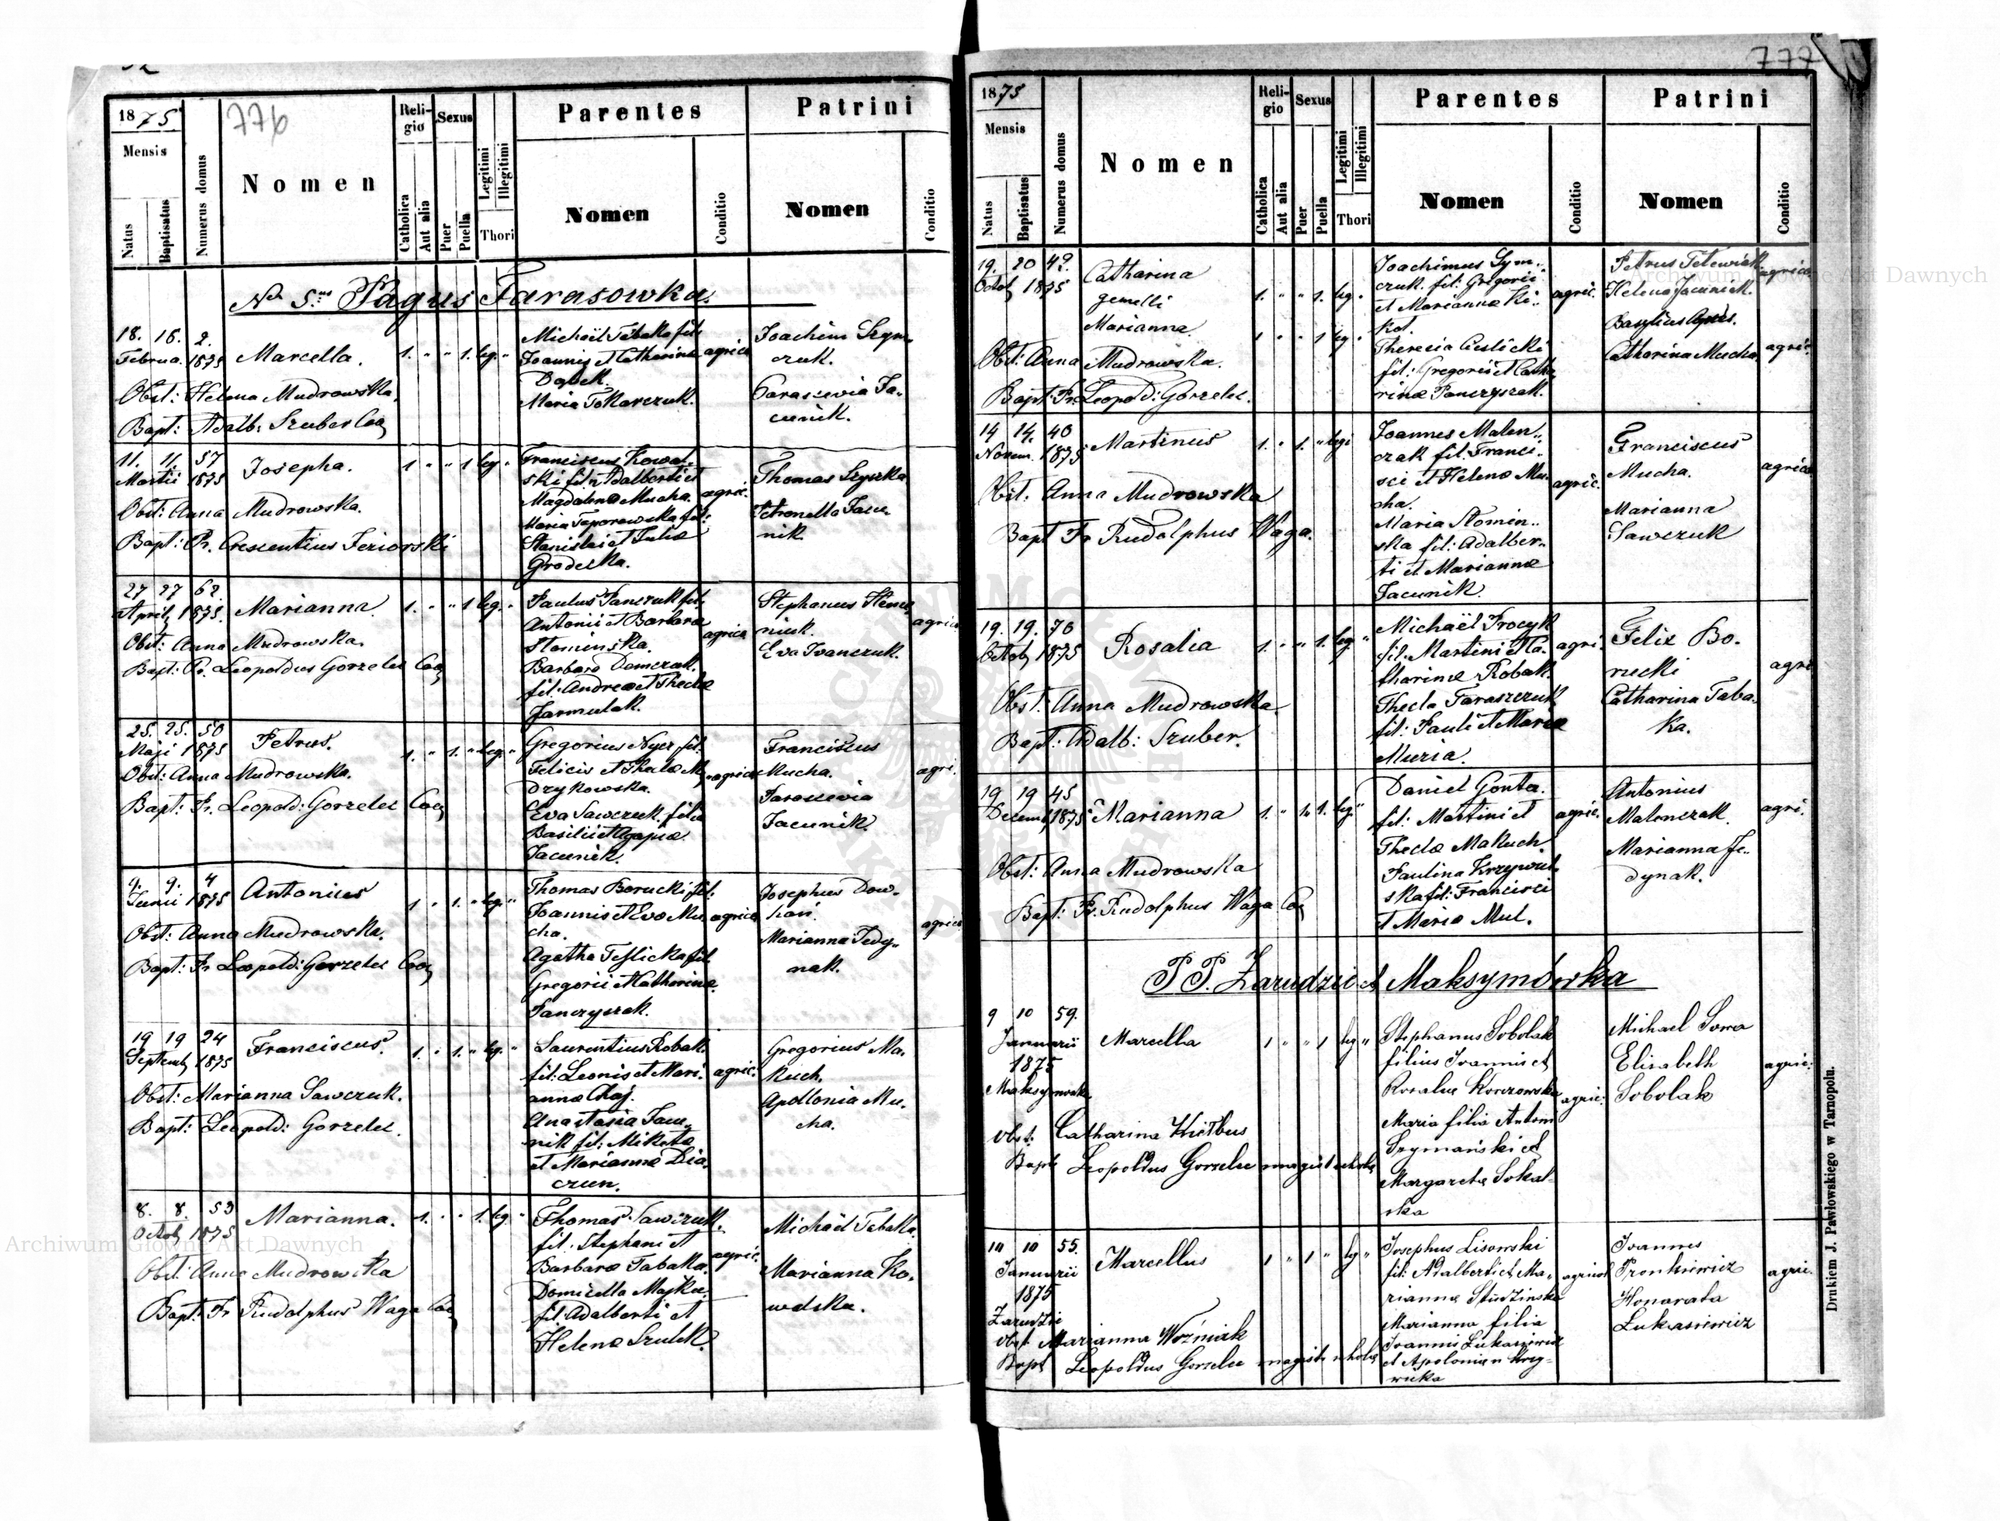 776
1875
Mensis
Natus
Baptisatus
Numerus domus
Nomen
Religio
Catholica
Aut alia
Sexus
Puer
Puella
Legitimi
Illegitimi
Thori
Parentes
Nomen
Conditio
Patrini
Nomen
Conditio
Pagus Tarasowka.
18. 16. 2.
Februa. 1875
Marcella.
1. " " 1. leg. "
Michaël Tabaka fil:
Joannis et Catharinae
Maria Tokarczuk.
agric.
Joachim Szym-
czuk.
Parascevia Ja-
cunik.
Obst: Helena Mudrowska.
Bapt: Adalb: Szuber Coo
11. 11. 57
Martii 1875
Josepha.
1. " " 1 leg. "
Franciscus Kowal-
ski fil: Adalberti et
Magdalena Mucha.
Maria Taporowska fil:
Stanislai et Julia
Grodecka.
agric.
Thomas Szyszka
Petronella Jacu-
nik
Obst: Anna Mudrowska.
Bapt: Fr. Crescentius Jeziorski
27 27 62.
April 1875.
Marianna
1. " " 1 leg. "
Paulus Panczuk fil:
Antonii et Barbara
Slominska.
Barbara Domczak
fil: Andreae et Thecla
Jarmulak.
agric.
Stephanus
niuk.
Eva Iwanczuk.
agric.
Obst: Anna Mudrowska.
Bapt: Fr. Leopoldus Gorzelec Coo
25. 25. 50
Maji 1875
Petrus.
1. " 1. " leg. "
Gregorius Nyer fil:
Felicis et Thecla M
drykowska.
Eva Sawczuk filia
Basilii et Agapia
Jacunik.
agric.
Franciscus
Mucha.
Parascevia
Jacunik.
agri.
Obst: Anna Mudrowska.
Bapt: Fr. Leopold: Gorzelec Coo
9. 9. 4
Junii 1875
Antonius
1. " 1. " leg. "
Thomas Borucki fil:
Joannis et Eva Mu-
cha.
Agatha Teslicka fil:
Gregorii et Katharina
Panczyszak.
agric.
Josephus Dow-
hań.
Marianna Fedy-
nak.
agric.
Obst: Anna Mudrowska.
Bapt: Fr Leopold: Gorzelec Coo
19 19 24
Septemb 1875
Franciscus.
1. " 1. " leg. "
Laurentius Robak
fil: Leonis et Mari-
anna Chaj.
Anastasia Jacu-
nik fil: Mikita
et Marianna Dia-
czun.
agric.
Gregorius Ma-
kuch.
Apollonia Mu-
cha.
Obst: Marianna Sawczuk.
Bapt: Leopold: Gorzelec.
8. 8. 53
Octob 1875
Marianna.
1. " " 1. leg. "
Thomas Sawczuk.
fil: Stephani et
Barbara Tabaka.
Domicella Majka
fil: Adalberti et
Helena Szulck.
agric.
Michaël Tabaka.
Marianna Ko-
walska.
Obst: Anna Mudrowska
Bapt: Fr Rudolphus Waga Coo
777
1875
Mensis
Natus
Baptisatus
Numerus domus
Nomen
Religio
Catholica
Aut alia
Sexus
Puer
Puella
Legitimi
Illegitimi
Thori
Parentes
Nomen
Conditio
Patrini
Nomen
Conditio
19. 20 49.
Octob 1875
Catharina
gemelli
Marianna
1. " " 1. leg. "
1 " " 1 leg. "
Joachimus Szym-
czuk fil: Gregorii
et Marianna Ki-
kot.
Therecia Cieslicki
fil: Gregorii et Catha-
rina Panczyszak.
agric.
Petrus
Helena Jacunik.
Basylius
Catharina Mucha
agric.
agric.
Obst: Anna Mudrowska.
Bapt: Fr: Leopold: Gorzelec.
14 14. 40
Novem. 1875
Martinus
1. " 1. " leg.
Joannes Malen-
czak fil: Franci-
sci et Helena Mu-
cha.
Maria Slomin-
ska fil: Adalber-
ti et Marianna
Jacunik.
agric.
Franciscus
Mucha.
Marianna
Sawczuk
agric.
Obst. Anna Mudrowska
Bapt Fr Rudolphus Waga.
19. 19. 70
Octob 1875
Rosalia
1. " " 1. leg "
Michaël Trocyk
fil: Martini et Ca-
tharina Robak.
Thecla Taraszczuk
fil: Pauli et Maria
Muzia.
agri.
Felix Bo-
rucki
Catharina Taba-
ka.
agri
Obst. Anna Mudrowska
Bapt: Adalb: Szuber.
19 19 45
Decemb 1875
Marianna
1. " " 1. leg. "
Daniel Gonta.
fil: Martini et
Thecla Makuch.
Paulina Krzywul-
ska fil: Francisci
et Maria Mul.
agric.
Antonius
Malenczak.
Marianna Fe-
dynak.
agri.
Obst: Anna Mudrowska
Bapt: Fr. Rudolphus Waga Coo
PP. Zarudzie et Maksymówka
9 10 59.
Januarii
1875
Maksymowka
Marcella
1 " " 1 leg "
Stephanus Sobolak
filius Ivannis et
Rosaliae Korczowska
Maria filia Antonii
Szymański et
Margareta Sokal-
ska
agric:
Michael Sowa
Elisabeth
Sobolak
agric:
Obst: Catharina Kiełbus
Bapt Leopoldus Gorzelec magist schola
10 10 55.
Januarii
1875
Zarudzie
Marcellus
1 " 1 " leg "
Josephus Lisowski
fil: Adalberti et Ma-
rianna Studzinska
Marianna filia
Joannis Łukasiewicz
et Apolonia
wicka
agricol
Ivannes
Pronkiewicz
Honorata
Łukasiewicz
agric.
Obst Marianna Woźniak
Bapt Leopoldus Gorzelec magist schola
Drukiem J. Pawłowskiego w Tarnopolu.
Archiwum Główne Akt Dawnych
Archiwum Główne Akt Dawnych